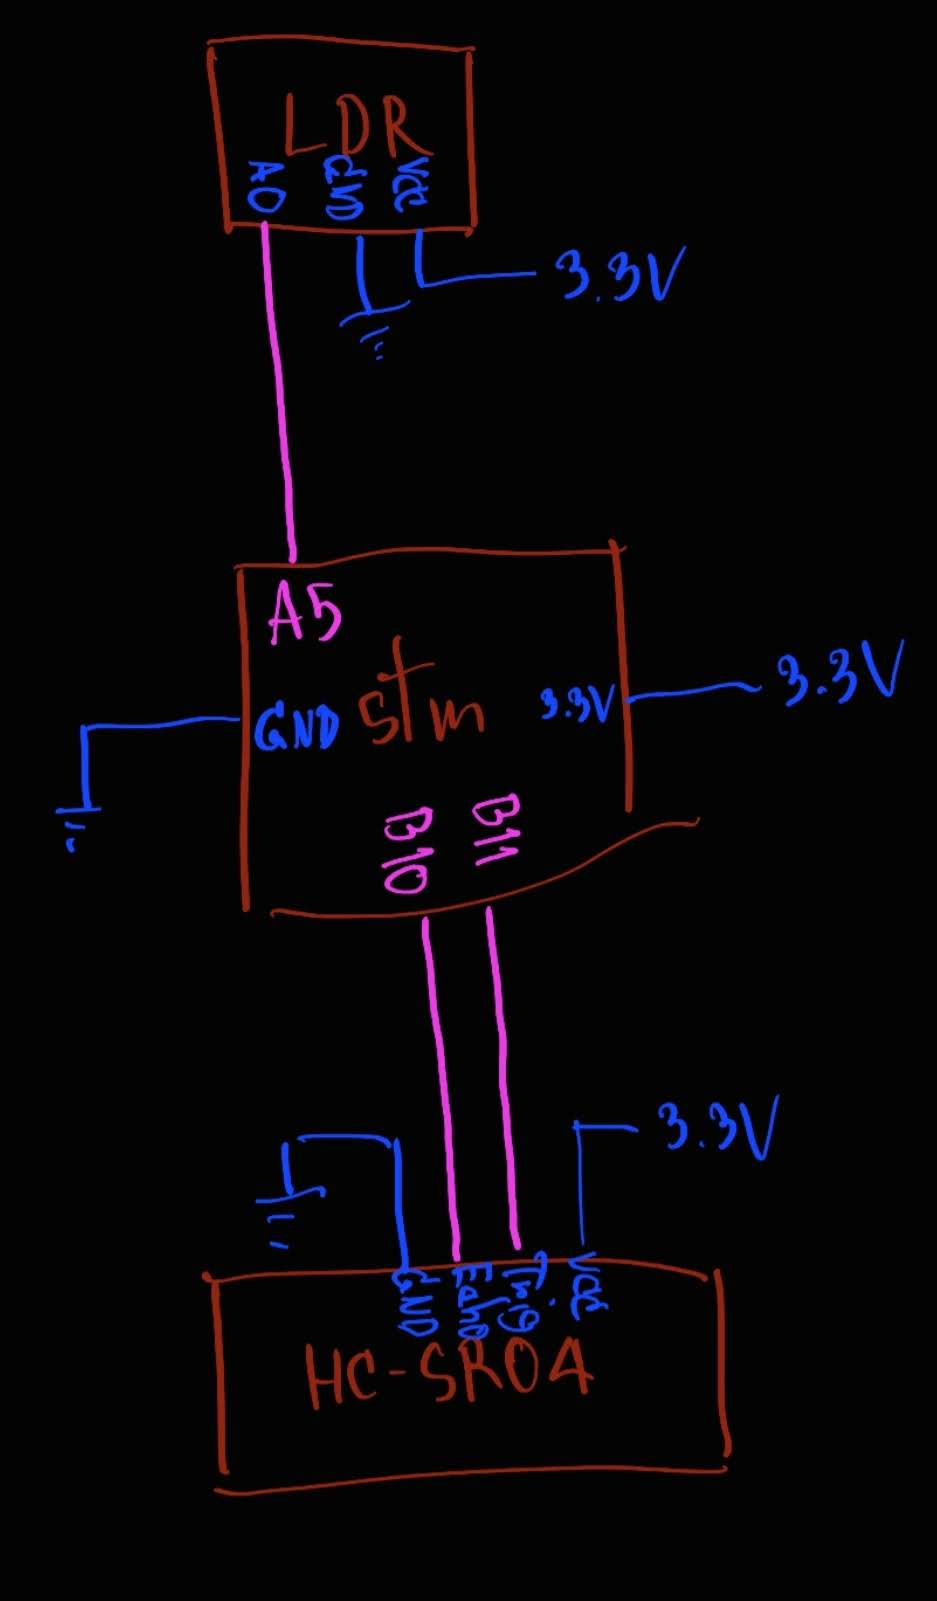 LDR
AO GND VCC
3.3V
A5
GND stm 3.3V
3.3V
B10 B11
3.3V
GND Echo Trig. VCC
HC-SR04